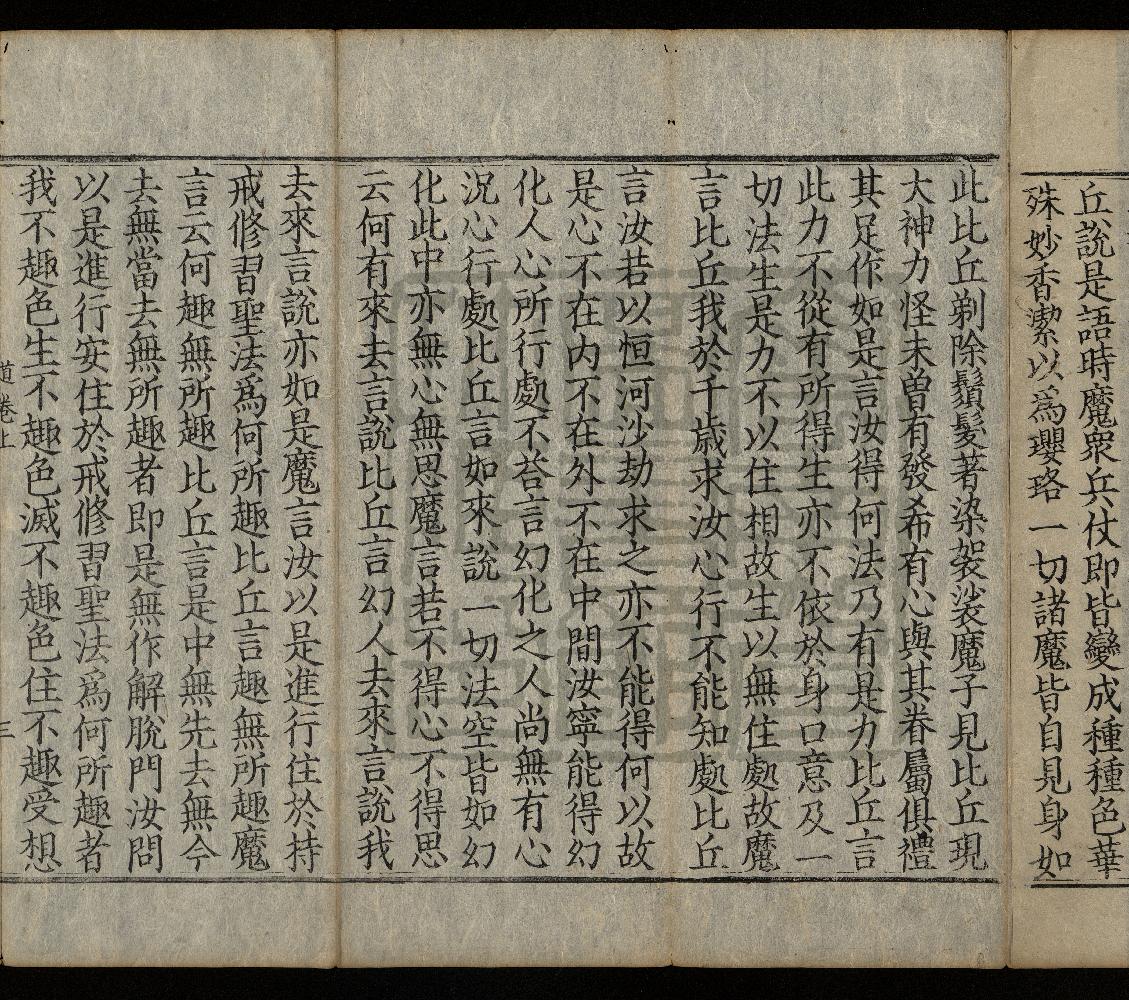 丘說是語時魔眾兵仗即皆變成種種色華
殊妙香潔以為瓔珞一切諸魔皆自見身如
此比丘剃除鬚髮著染袈裟魔子見比丘現
大神力怪未曾有發希有心與其眷屬俱禮
其足作如是言汝得何法乃有是力比丘言
此力不從有所得生亦不依於身口意及一
切法生是力不以住相故生以無住處故魔
言比丘我於千歲求汝心行不能知處比丘
言汝若以恒河沙劫求之亦不能得何以故
是心不在內不在外不在中間汝寧能得幻
化人心所行處不荅言幻化之人尚無有心
況心行處比丘言如來說一切法空皆如幻
化此中亦無心無思魔言若不得心不得思
云何有來去言說比丘言幻人去來言說我
去來言說亦如是魔言汝以是進行住於持
戒修習聖法為何所趣比丘言趣無所趣魔
言云何趣無所趣比丘言是中無先去無今
去無當去無所趣者即是無作解脫門汝問
以是進行安住於戒修習聖法為何所趣者
我不趣色生不趣色滅不趣色住不趣受想
道卷上
三